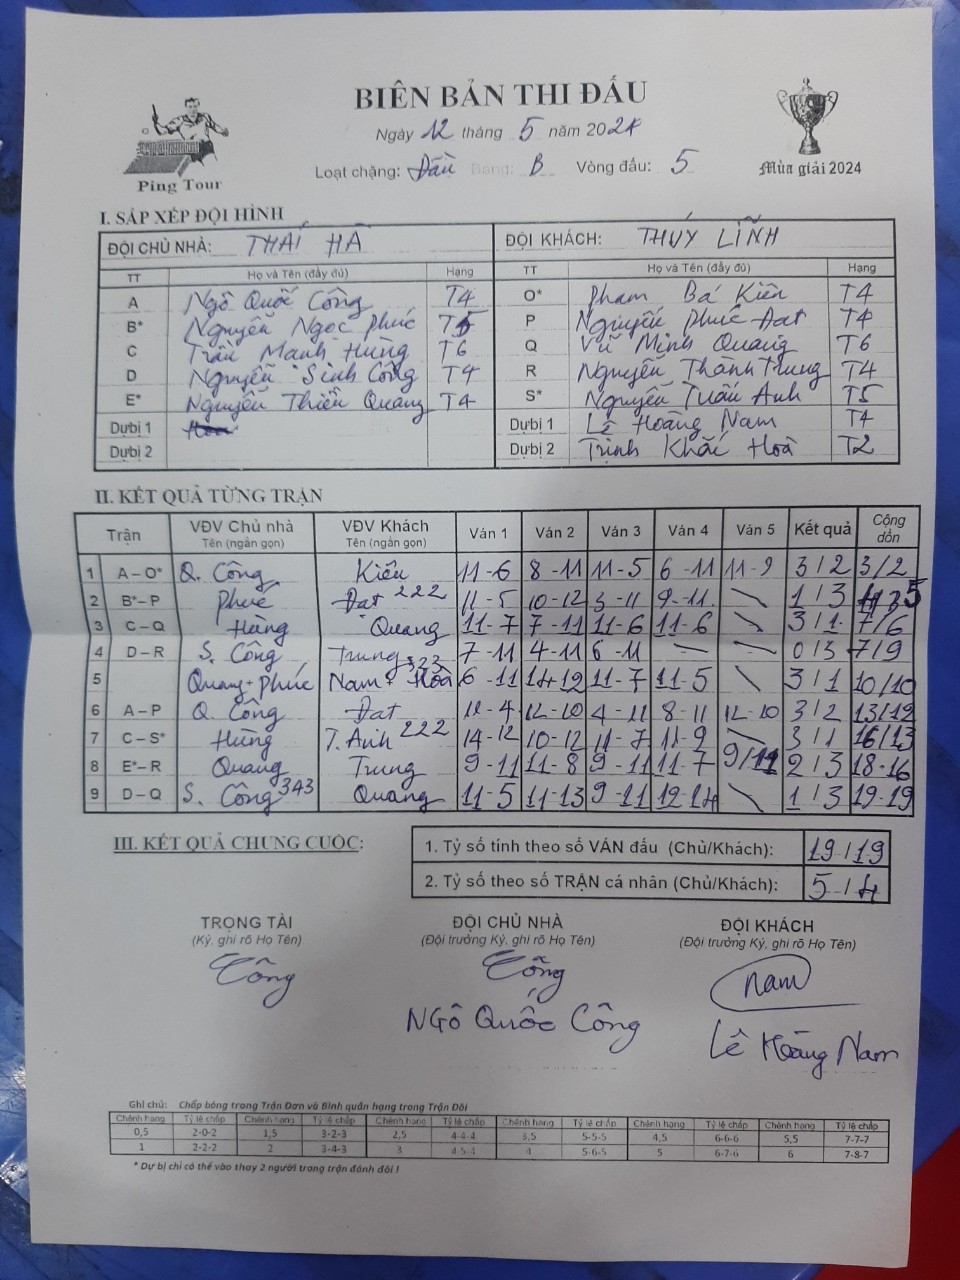 BIÊN BẢN THI ĐẤU
Ngày 12 tháng 5 năm 2024
Loạt chặng: Đầu Bảng: B Vòng đấu: 5
Ping Tour
Mùa giải 2024
I. SẮP XẾP ĐỘI HÌNH
ĐỘI CHỦ NHÀ: THÁI HÀ ĐỘI KHÁCH: THÚY LĨNH
TT Họ và Tên (đầy đủ) Hạng TT Họ và Tên (đầy đủ) Hạng
A Ngô Quốc Công T4 O* Phạm Bá Kiên T4
B* Nguyễn Ngọc Phúc T5 P Nguyễn Phúc Đạt T4
C Trần Mạnh Hùng T6 Q Vũ Minh Quang T6
D Nguyễn Sinh Công T4 R Nguyễn Thành Trung T4
E* Nguyễn Thiều Quang T4 S* Nguyễn Tuấn Anh T5
Dự bị 1 Lê Hoàng Nam T4
Dự bị 2 Dự bị 1
Dự bị 2 Trịnh Khắc Hoà T2
II. KẾT QUẢ TỪNG TRẬN
Trận VĐV Chủ nhà Tên (ngắn gọn) VĐV Khách Tên (ngắn gọn) Ván 1 Ván 2 Ván 3 Ván 4 Ván 5 Kết quả Cộng dồn
1 A – O* Q. Công Kiên 11-6 8-11 11-5 6-11 11-9 3/2 3/2
2 B* – P Phúc Đạt 222 11-5 10-12 3-11 9-11 1/3 5
3 C – Q Hùng Quang 11-7 7-11 11-6 11-6 3/1 7/6
4 D – R S. Công Trung 7-11 4-11 6-11 — — 0/3 7/9
5 Quang+Phúc Nam+Hoà 323 6-11 14-12 11-7 11-5 3/1 10/10
6 A – P Q. Công Đạt 11-4 12-10 4-11 8-11 12-10 3/2 13/12
7 C – S* Hùng T. Anh 222 14-12 10-12 11-7 11-9 3/1 16/13
8 E* – R Quang Trung 9-11 11-8 9-11 11-7 9/11 2/3 18-16
9 D – Q S. Công 343 Quang 11-5 11-13 9-11 12-14 1/3 19-19
III. KẾT QUẢ CHUNG CUỘC:
1. Tỷ số tính theo số VÁN đấu (Chủ/Khách): 19/19
2. Tỷ số theo số TRẬN cá nhân (Chủ/Khách): 5/4
TRỌNG TÀI ĐỘI CHỦ NHÀ ĐỘI KHÁCH
(Ký, ghi rõ Họ Tên) (Đội trưởng Ký, ghi rõ Họ Tên) (Đội trưởng Ký, ghi rõ Họ Tên)
Công Công Nam
NGÔ QUỐC CÔNG Lê Hoàng Nam
Ghi chú: Chấp bóng trong Trận Đơn và Bình quân hạng trong Trận Đôi
Chênh hạng Tỷ lệ chấp Chênh hạng Tỷ lệ chấp Chênh hạng Tỷ lệ chấp Chênh hạng Tỷ lệ chấp Chênh hạng Tỷ lệ chấp Chênh hạng Tỷ lệ chấp
0,5 2-0-2 1,5 3-2-3 2,5 4-4-4 3,5 5-5-5 4,5 6-6-6 5,5 7-7-7
1 2-2-2 2 3-4-3 3 4-5-4 4 5-6-5 5 6-7-6 6 7-8-7
* Dự bị chỉ có thể vào thay 2 người trong trận đánh đôi !